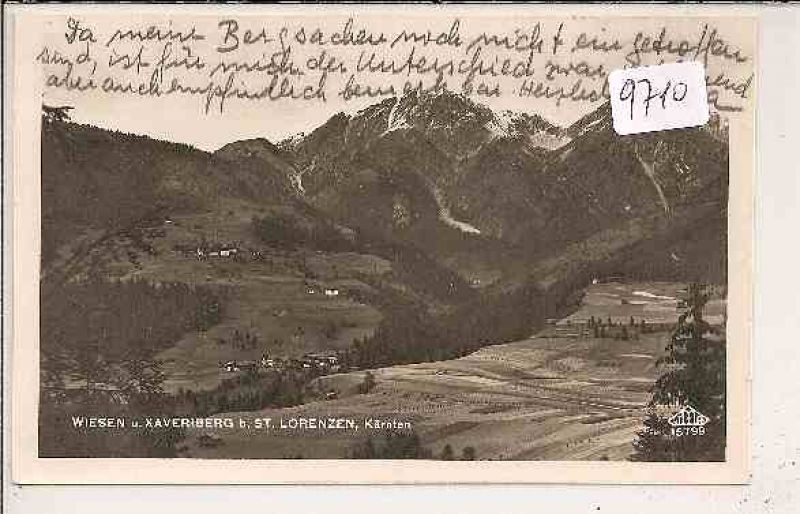 Da meine Bergsachen noch nicht eingetroffen
sind, ist für mich der Unterschied zwar
aber auch empfindlich bemerkbar. Herzlichst
9710
WIESEN u. XAVERIBERG b. ST. LORENZEN, Kärnten
15798